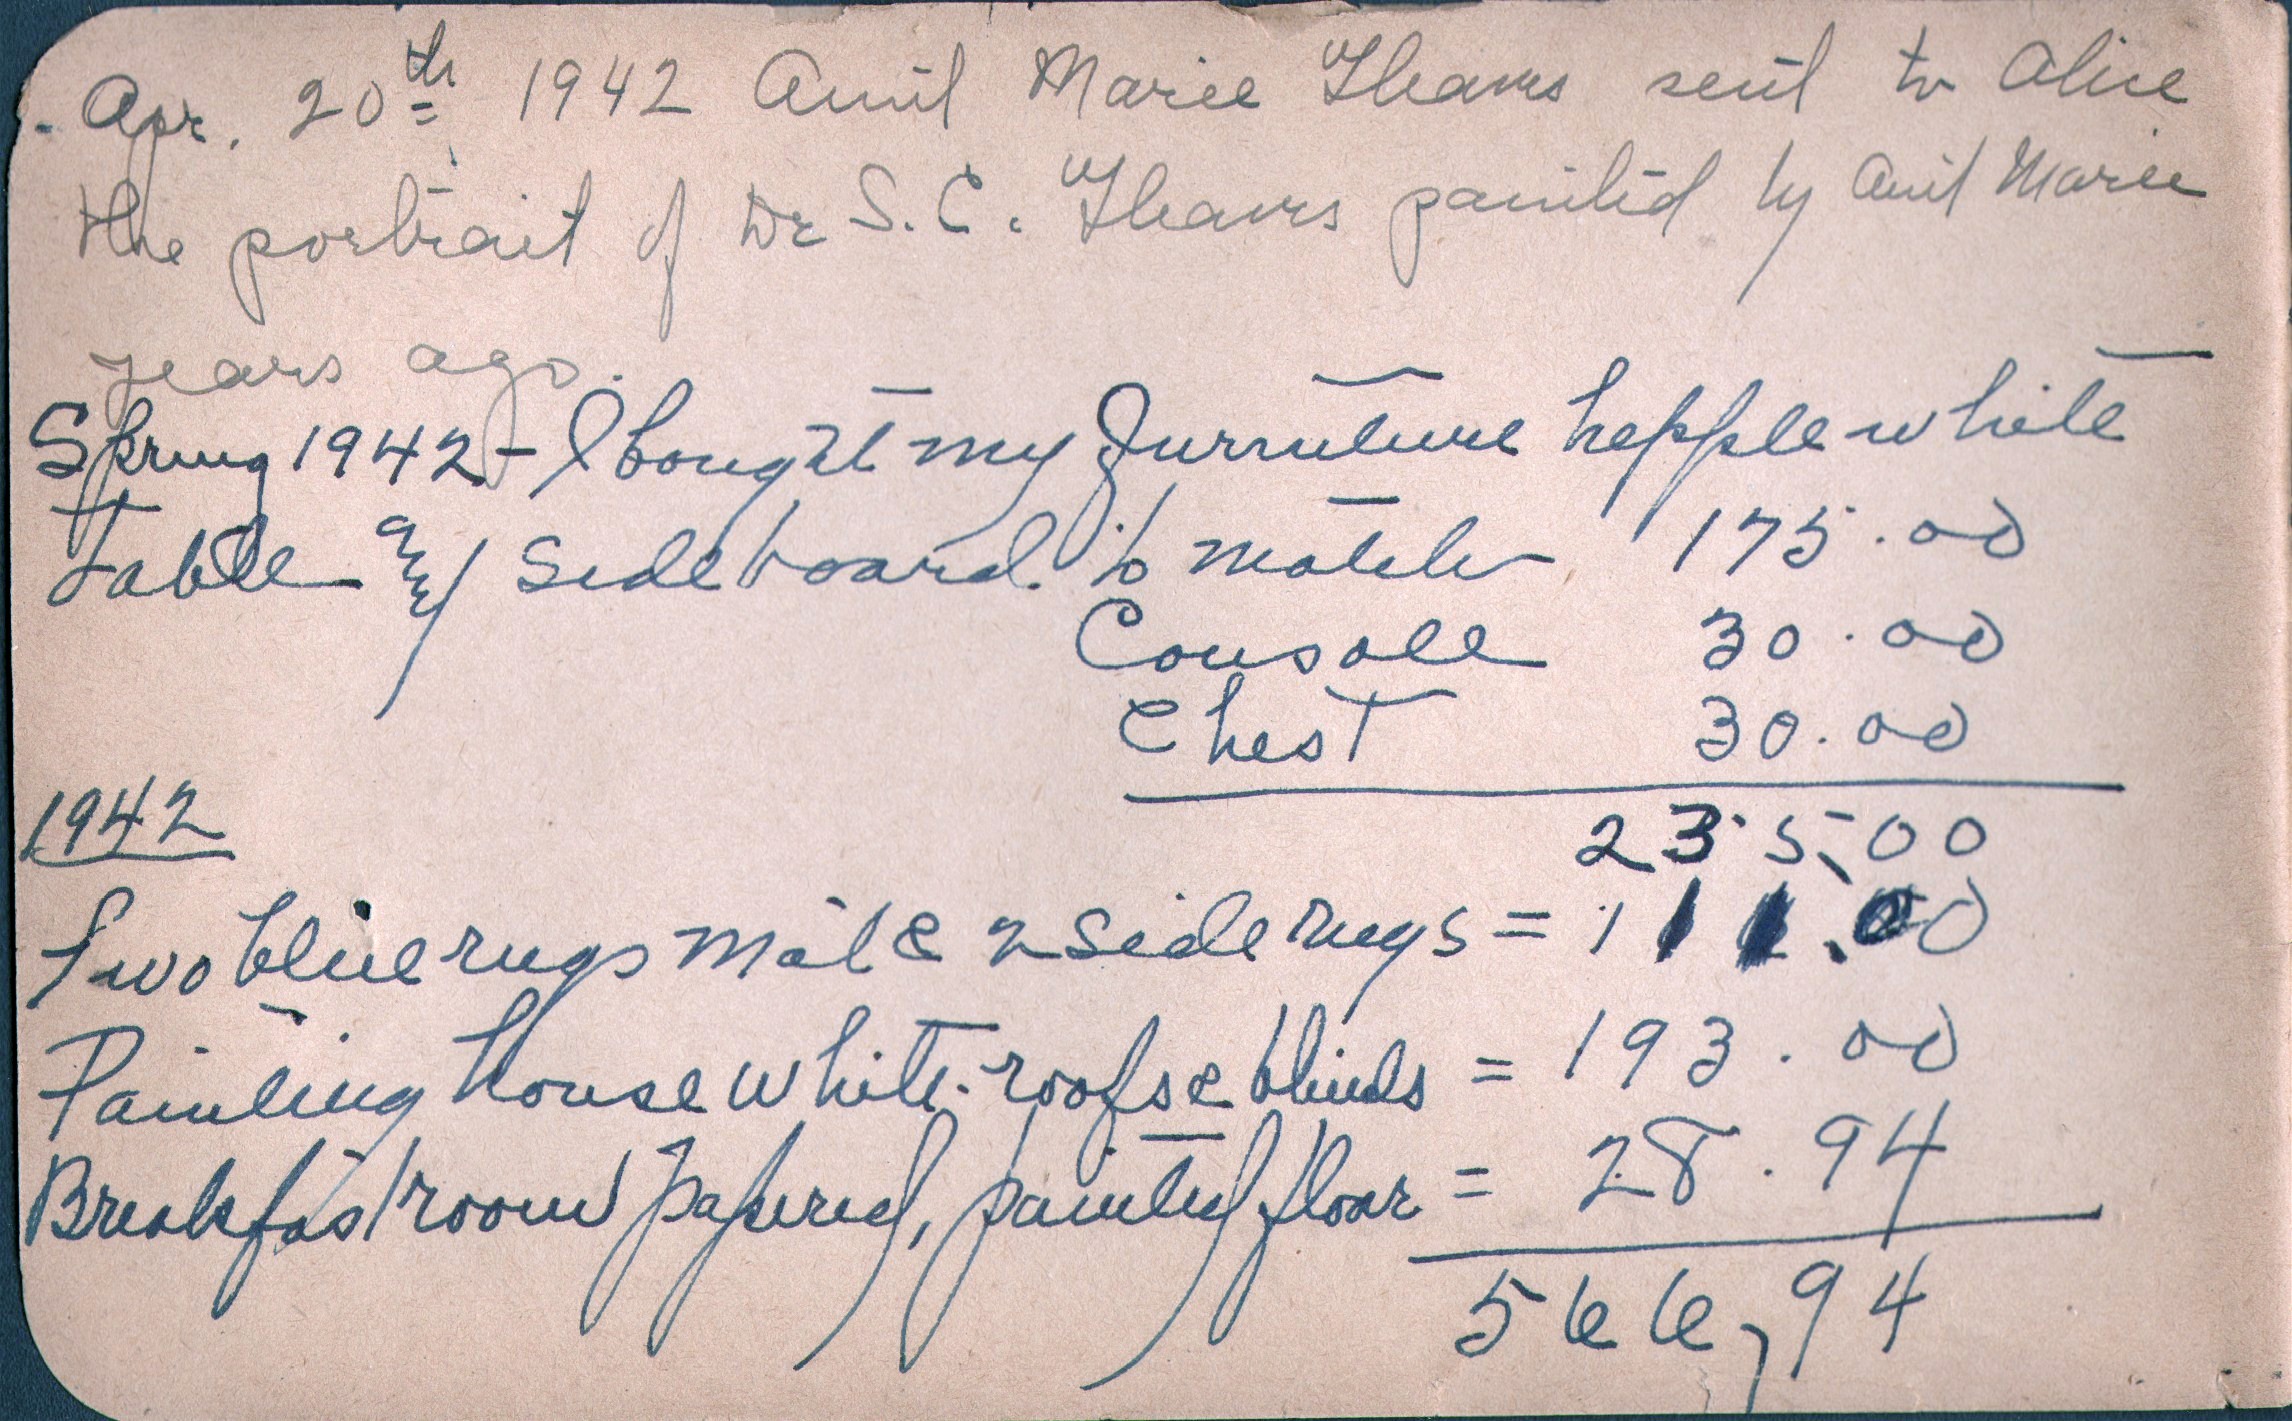 Apr. 20th 1942 Aunt Mariee Gleaves sent to Alice
the portrait of Dr S. C. Gleaves painted by Aunt Mariee
years ago.
Spring 1942 - I bought my furniture hepplewhite
table and sideboard to match 175.00
Console 30.00
Chest 30.00
235.00
1942
Two blue rugs mat & 2 side rugs = 111.00
Painting house white - roofs & blinds = 193.00
Breakfast room papered, painted floor = 28.94
566,94